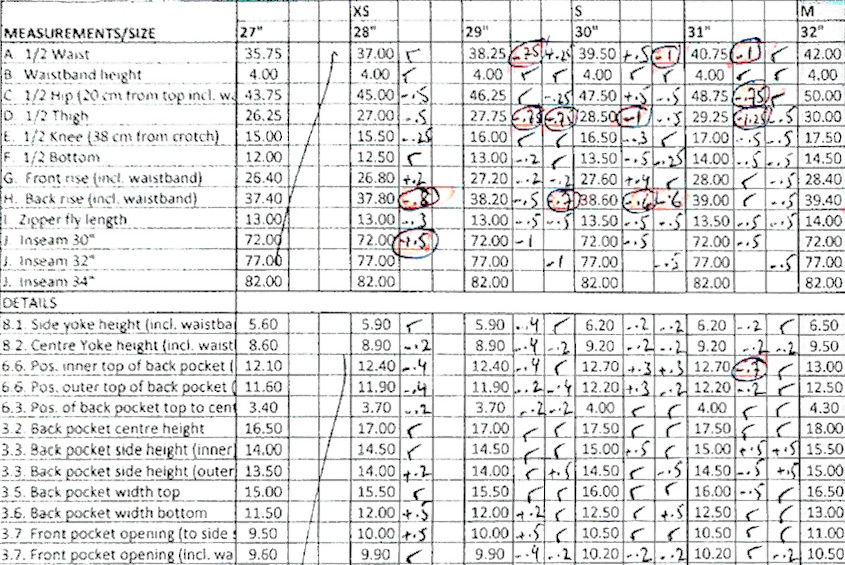 XS S M
MEASUREMENTS/SIZE 27" 28" 29" 30" 31" 32"
A. 1/2 Waist 35.75 37.00 ✓ 38.25 -.75 +.25 39.50 +.5 -1 40.75 -1 ✓ 42.00
B. Waistband height 4.00 4.00 ✓ 4.00 ✓ ✓ 4.00 ✓ ✓ 4.00 ✓ ✓ 4.00
C. 1/2 Hip (20 cm from top incl. wa 43.75 45.00 -.5 46.25 ✓ -.25 47.50 +.5 -.5 48.75 -.75 ✓ 50.00
D. 1/2 Thigh 26.25 27.00 -.5 27.75 -.75 -.75 28.50 -1 -.5 29.25 -1.25 -.5 30.00
E. 1/2 Knee (38 cm from crotch) 15.00 15.50 -.25 16.00 ✓ ✓ 16.50 -.3 ✓ 17.00 -.5 -.5 17.50
F. 1/2 Bottom 12.00 12.50 ✓ 13.00 -.2 ✓ 13.50 -.5 -.25 14.00 -.5 -.5 14.50
G. Front rise (incl. waistband) 26.40 26.80 +.2 27.20 -.2 -.2 27.60 +.4 ✓ 28.00 ✓ -.5 28.40
H. Back rise (incl. waistband) 37.40 37.80 -.8 38.20 -.5 -.7 38.60 -.6 -.6 39.00 ✓ -.5 39.40
I. Zipper fly length 13.00 13.00 -.3 13.00 -.5 -.5 13.50 -.5 -.5 13.50 -.5 -.5 14.00
J. Inseam 30" 72.00 72.00 -1.5 72.00 -1 72.00 -.5 72.00 -.5 72.00
J. Inseam 32" 77.00 77.00 77.00 -1 77.00 -.5 77.00 -.5 77.00
J. Inseam 34" 82.00 82.00 82.00 82.00 82.00 82.00
DETAILS
8.1. Side yoke height (incl. waistba 5.60 5.90 ✓ 5.90 -.4 ✓ 6.20 -.2 -.2 6.20 -.2 ✓ 6.50
8.2. Centre Yoke height (incl. waist 8.60 8.90 -.2 8.90 -.4 -.2 9.20 -.2 -.2 9.20 -.2 -.2 9.50
6.6. Pos. inner top of back pocket ( 12.10 12.40 -.4 12.40 -.4 ✓ 12.70 +.3 +.3 12.70 ✓ 13.00
6.6. Pos. outer top of back pocket ( 11.60 11.90 -.4 11.90 -.2 -.4 12.20 +.3 -.2 12.20 -.2 ✓ 12.50
6.3. Pos. of back pocket top to cent 3.40 3.70 -.2 3.70 -.2 -.2 4.00 ✓ ✓ 4.00 ✓ ✓ 4.30
3.2. Back pocket centre height 16.50 17.00 ✓ 17.00 ✓ ✓ 17.50 ✓ ✓ 17.50 ✓ ✓ 18.00
3.3. Back pocket side height (inner) 14.00 14.50 ✓ 14.50 ✓ ✓ 15.00 +.5 ✓ 15.00 +.5 +.5 15.50
3.3. Back pocket side height (outer 13.50 14.00 +.2 14.00 ✓ +.5 14.50 ✓ -.5 14.50 -.5 +.5 15.00
3.5. Back pocket width top 15.00 15.50 ✓ 15.50 ✓ ✓ 16.00 ✓ ✓ 16.00 -.5 ✓ 16.50
3.6. Back pocket width bottom 11.50 12.00 +.5 12.00 +.2 ✓ 12.50 ✓ +.5 12.50 ✓ ✓ 13.00
3.7 Front pocket opening (to side s 9.50 10.00 +.5 10.00 +.5 ✓ 10.50 ✓ ✓ 10.50 ✓ ✓ 11.00
3.7. Front pocket opening (incl. wa 9.60 9.90 ✓ 9.90 -.4 -.2 10.20 -.2 -.2 10.20 ✓ -.2 10.50